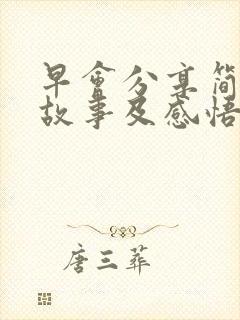 早會分享简
故事及感悟
唐三葬